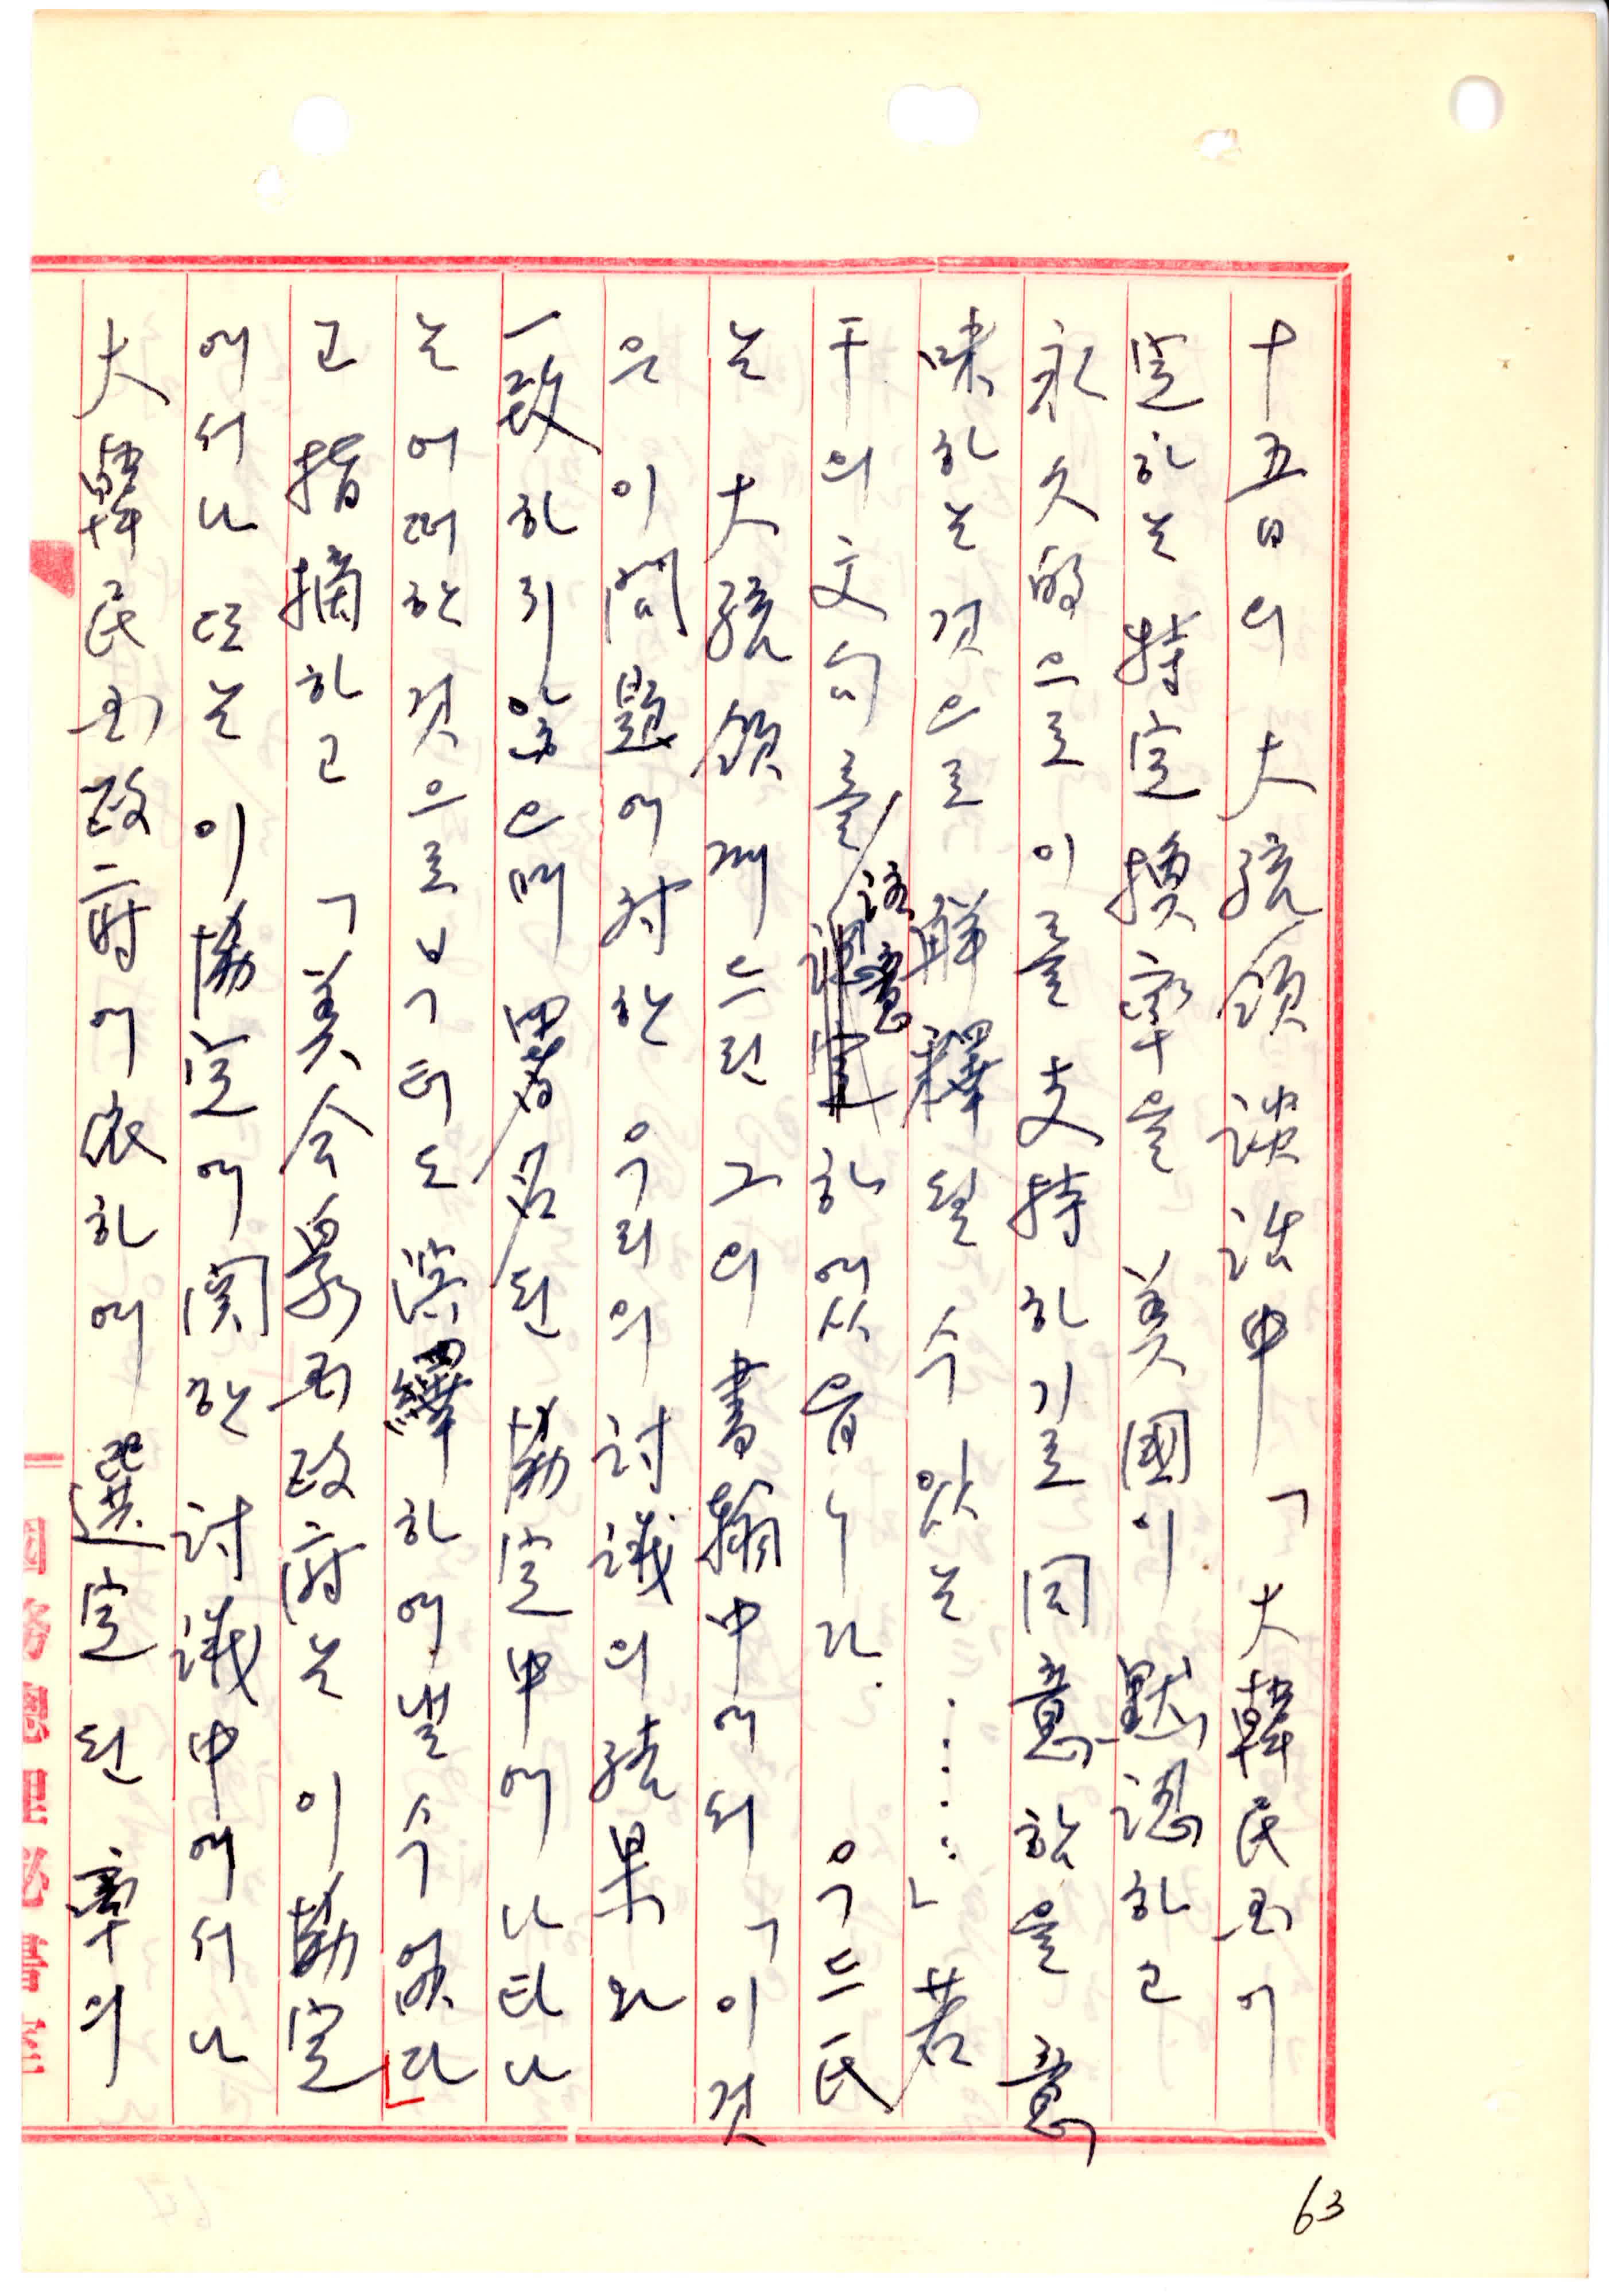 十五日의 大統領 談話中 「大韓民国이
定하는 特定換率을 美國이 默認하고
永久的으로 이를 支持하기로 同意하였음을 意
味하는 것으로 解釋될 수 있는……」 若
干의 文句를 注意하였읍니다. 우드氏
는 大統領께 드린 그의 書翰中에 되 「이것
은 이 問題에 対한 우리의 討議의 結果와
一致하지 않으며 署名된 協定中에 나타나
는 어떠한 것으로 보기터도 演繹하여 낼 수 없다」
고 指摘하고 「美合衆国政府는 이 協定
에서나 또는 이 協定에 関한 討議中에서나
大韓民国政府에 依하여 選定된 率의
63